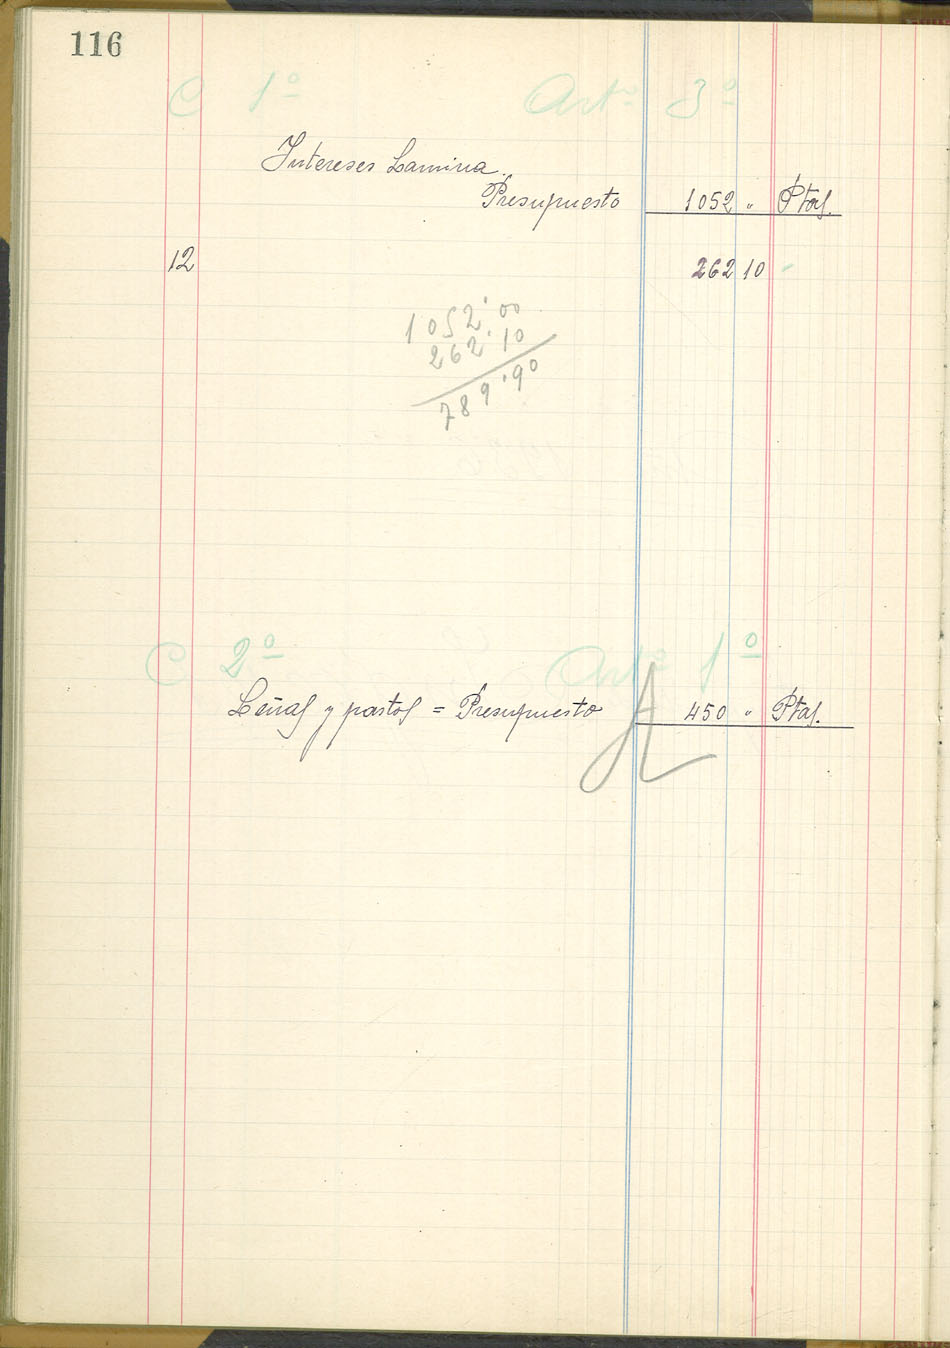 116
C 1º Artº 3º
Intereses Lamina.
Presupuesto 1052 " Ptas.
12 262 10
1052'00
262'10
789'90
C 2º Artº 1º
Leñas y pastos = Presupuesto 450 " Ptas.